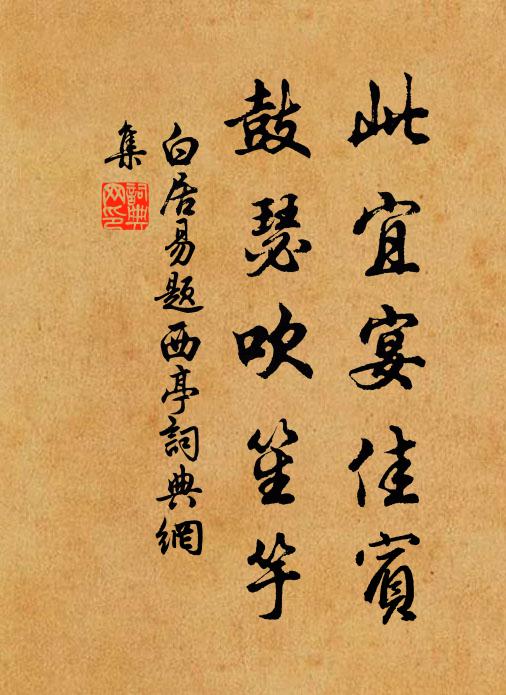 此宜宴佳賓
鼓瑟吹笙竽
白居易題西亭詞典網
集
詞典網印